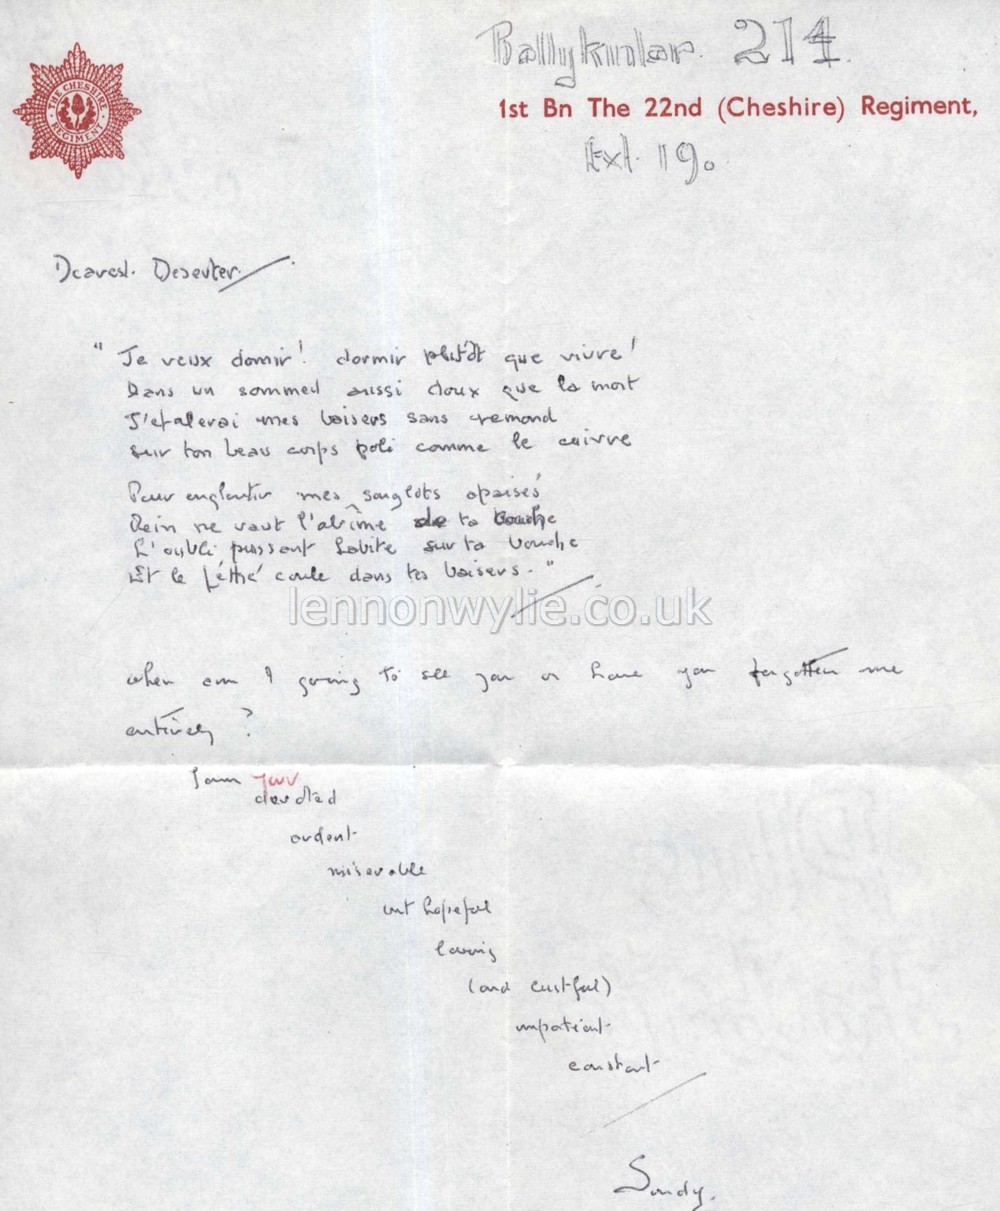 Ballykinlar. 214.
THE CHESHIRE REGIMENT
1st Bn The 22nd (Cheshire) Regiment,
Ext. 19.
Dearest. Deserter.
" Je veux domir! dormir plutôt que vivre!
Dans un sommeil aussi doux que la mort
J'etalerai mes baisers sans remond
sur ton beau corps poli comme le cuivre
Pour engloutir mes sanglots apaisés
Rein ne vaut l'abîme de ta bouche
L'oubli puissant habite sur ta bouche
Et le Léthé coule dans tes baisers. "
lennonwylie.co.uk
when am I going to see you or have you forgotten me
entirely ?
I am your
devoted
ardent
miserable
but hopeful
loving
(and lustful)
impatient
constant
Sandy.